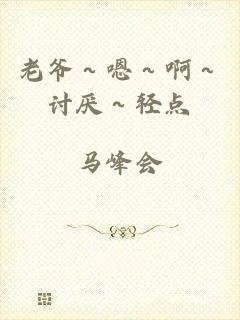 老爷～嗯～啊～
讨厌～轻点
马峰会